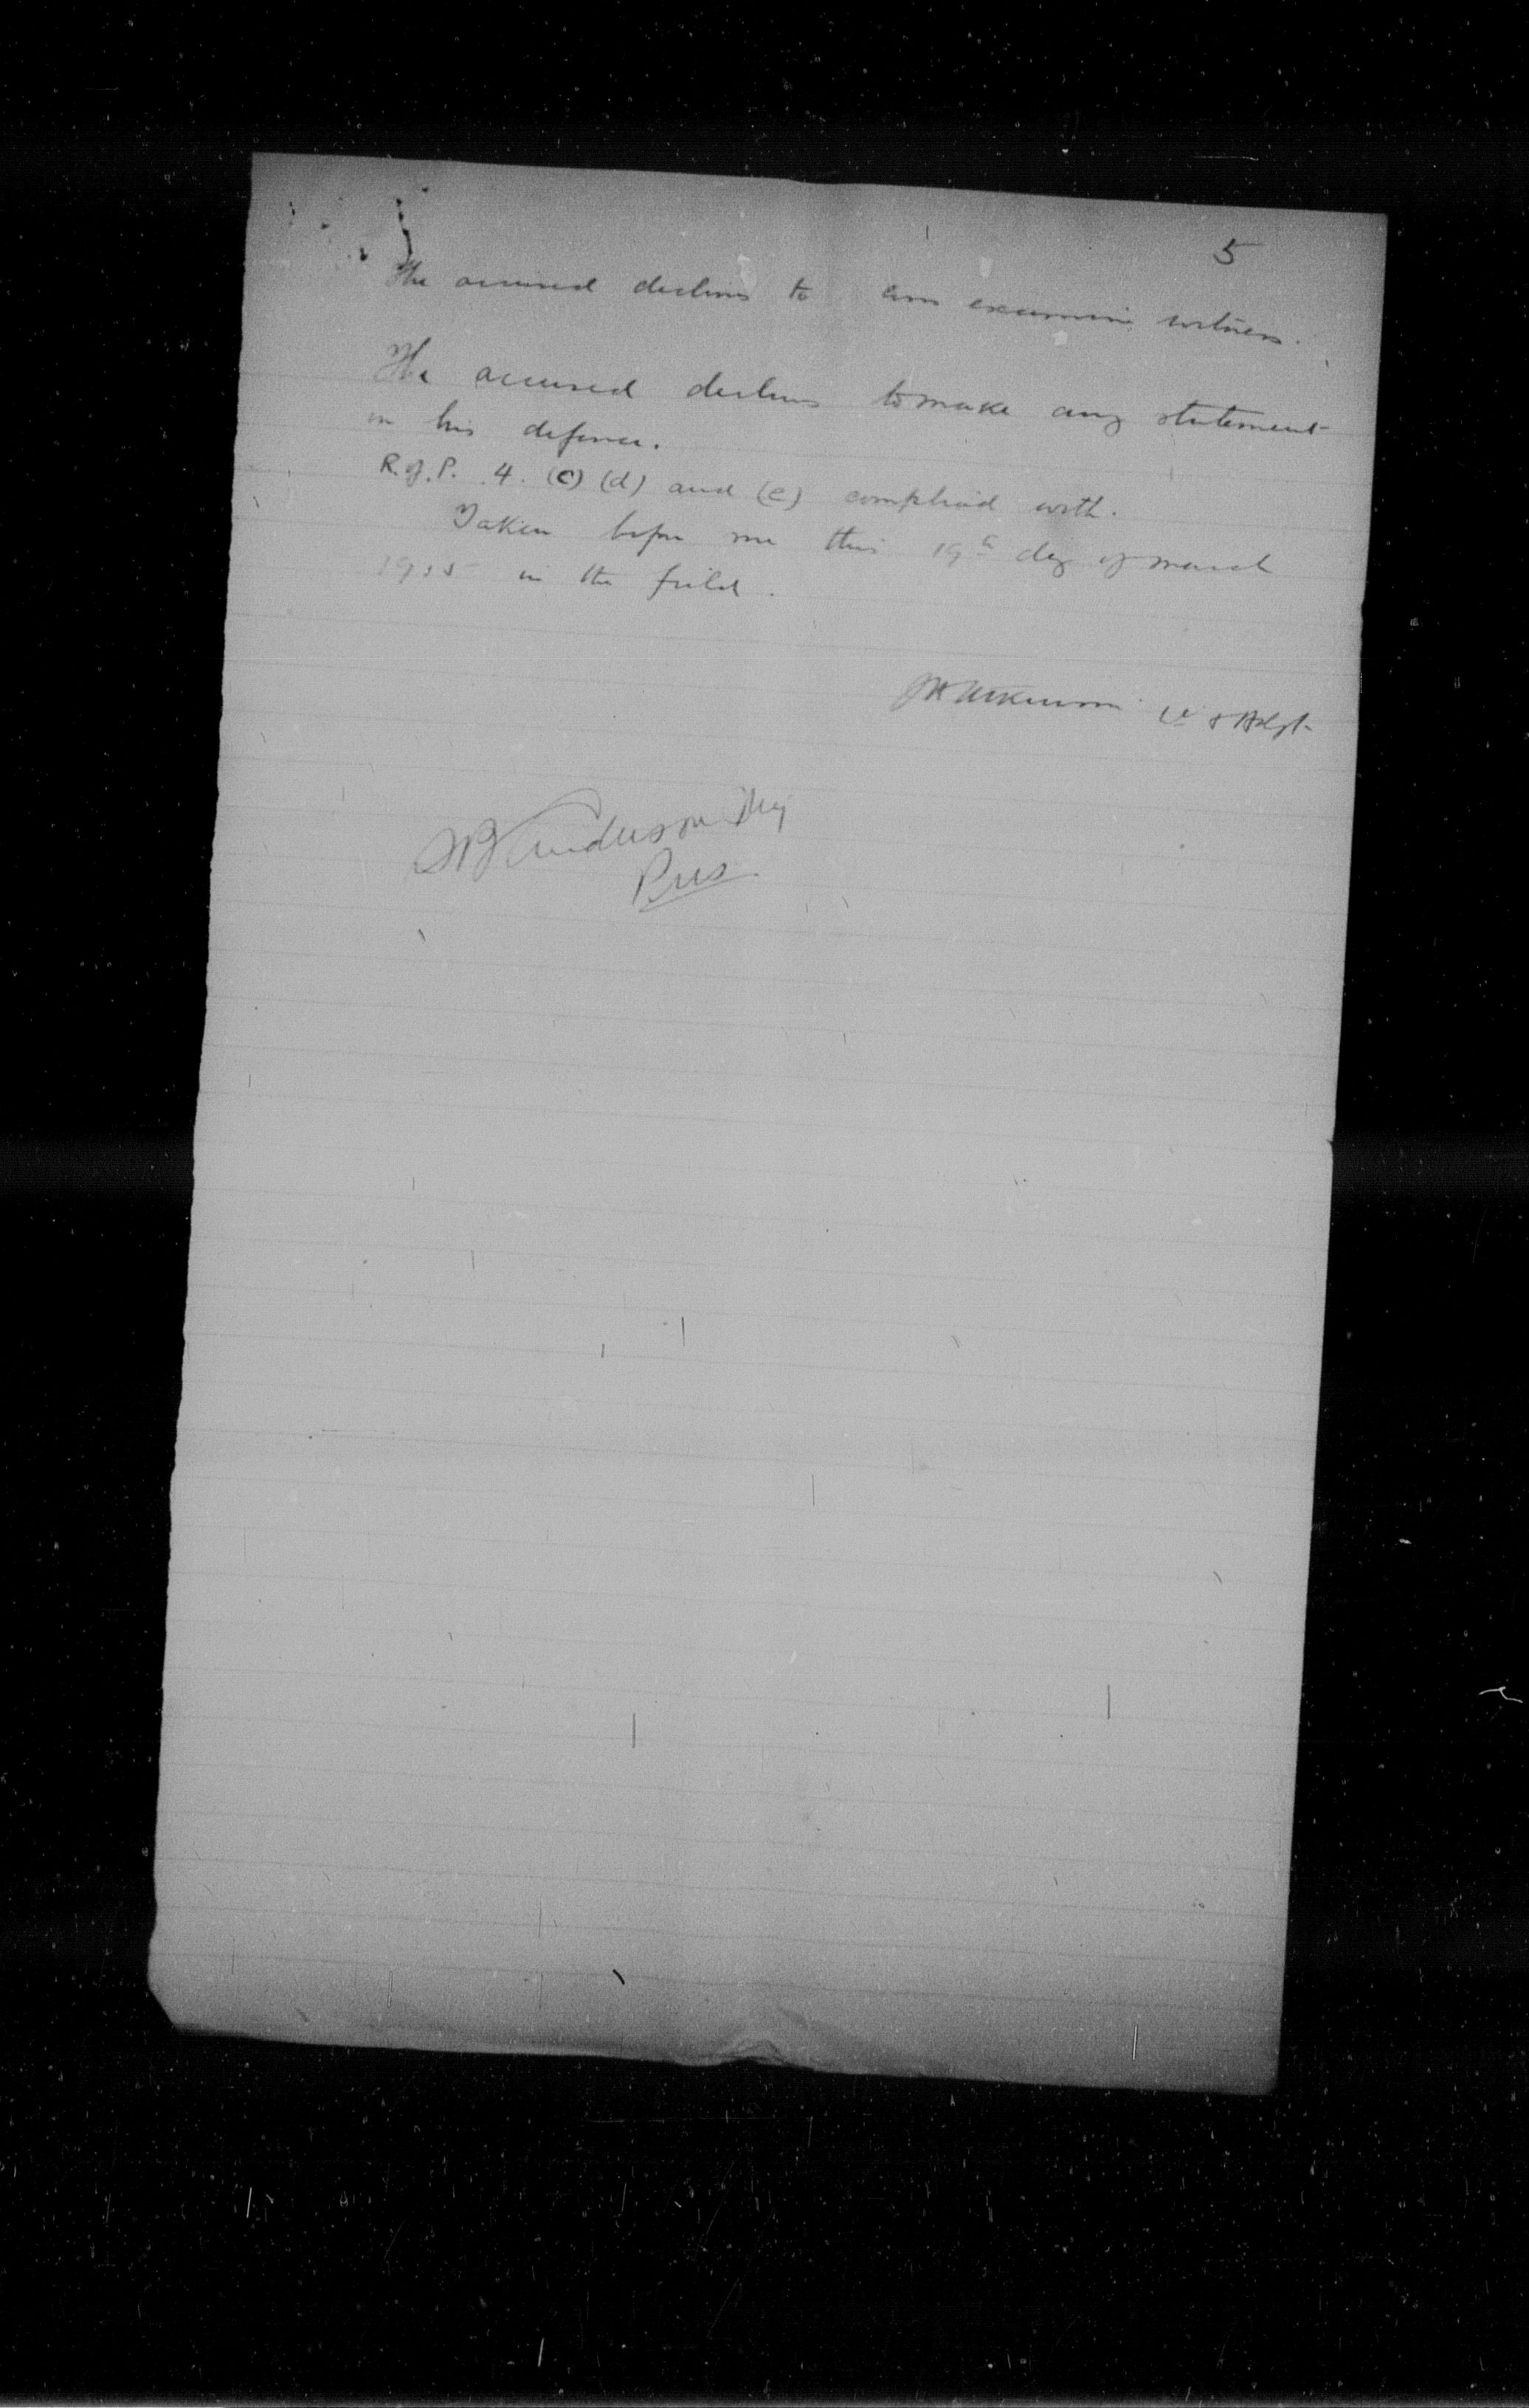 5
The accused declines to cross examine witness.
The accused declines to make any statement
in his defence.
R. of. P. 4. (c) (d) and (e) complied with.
Taken before me this 19th day of march
1915 in the field.
Lt & Adjt
Anderson Maj
Pres.